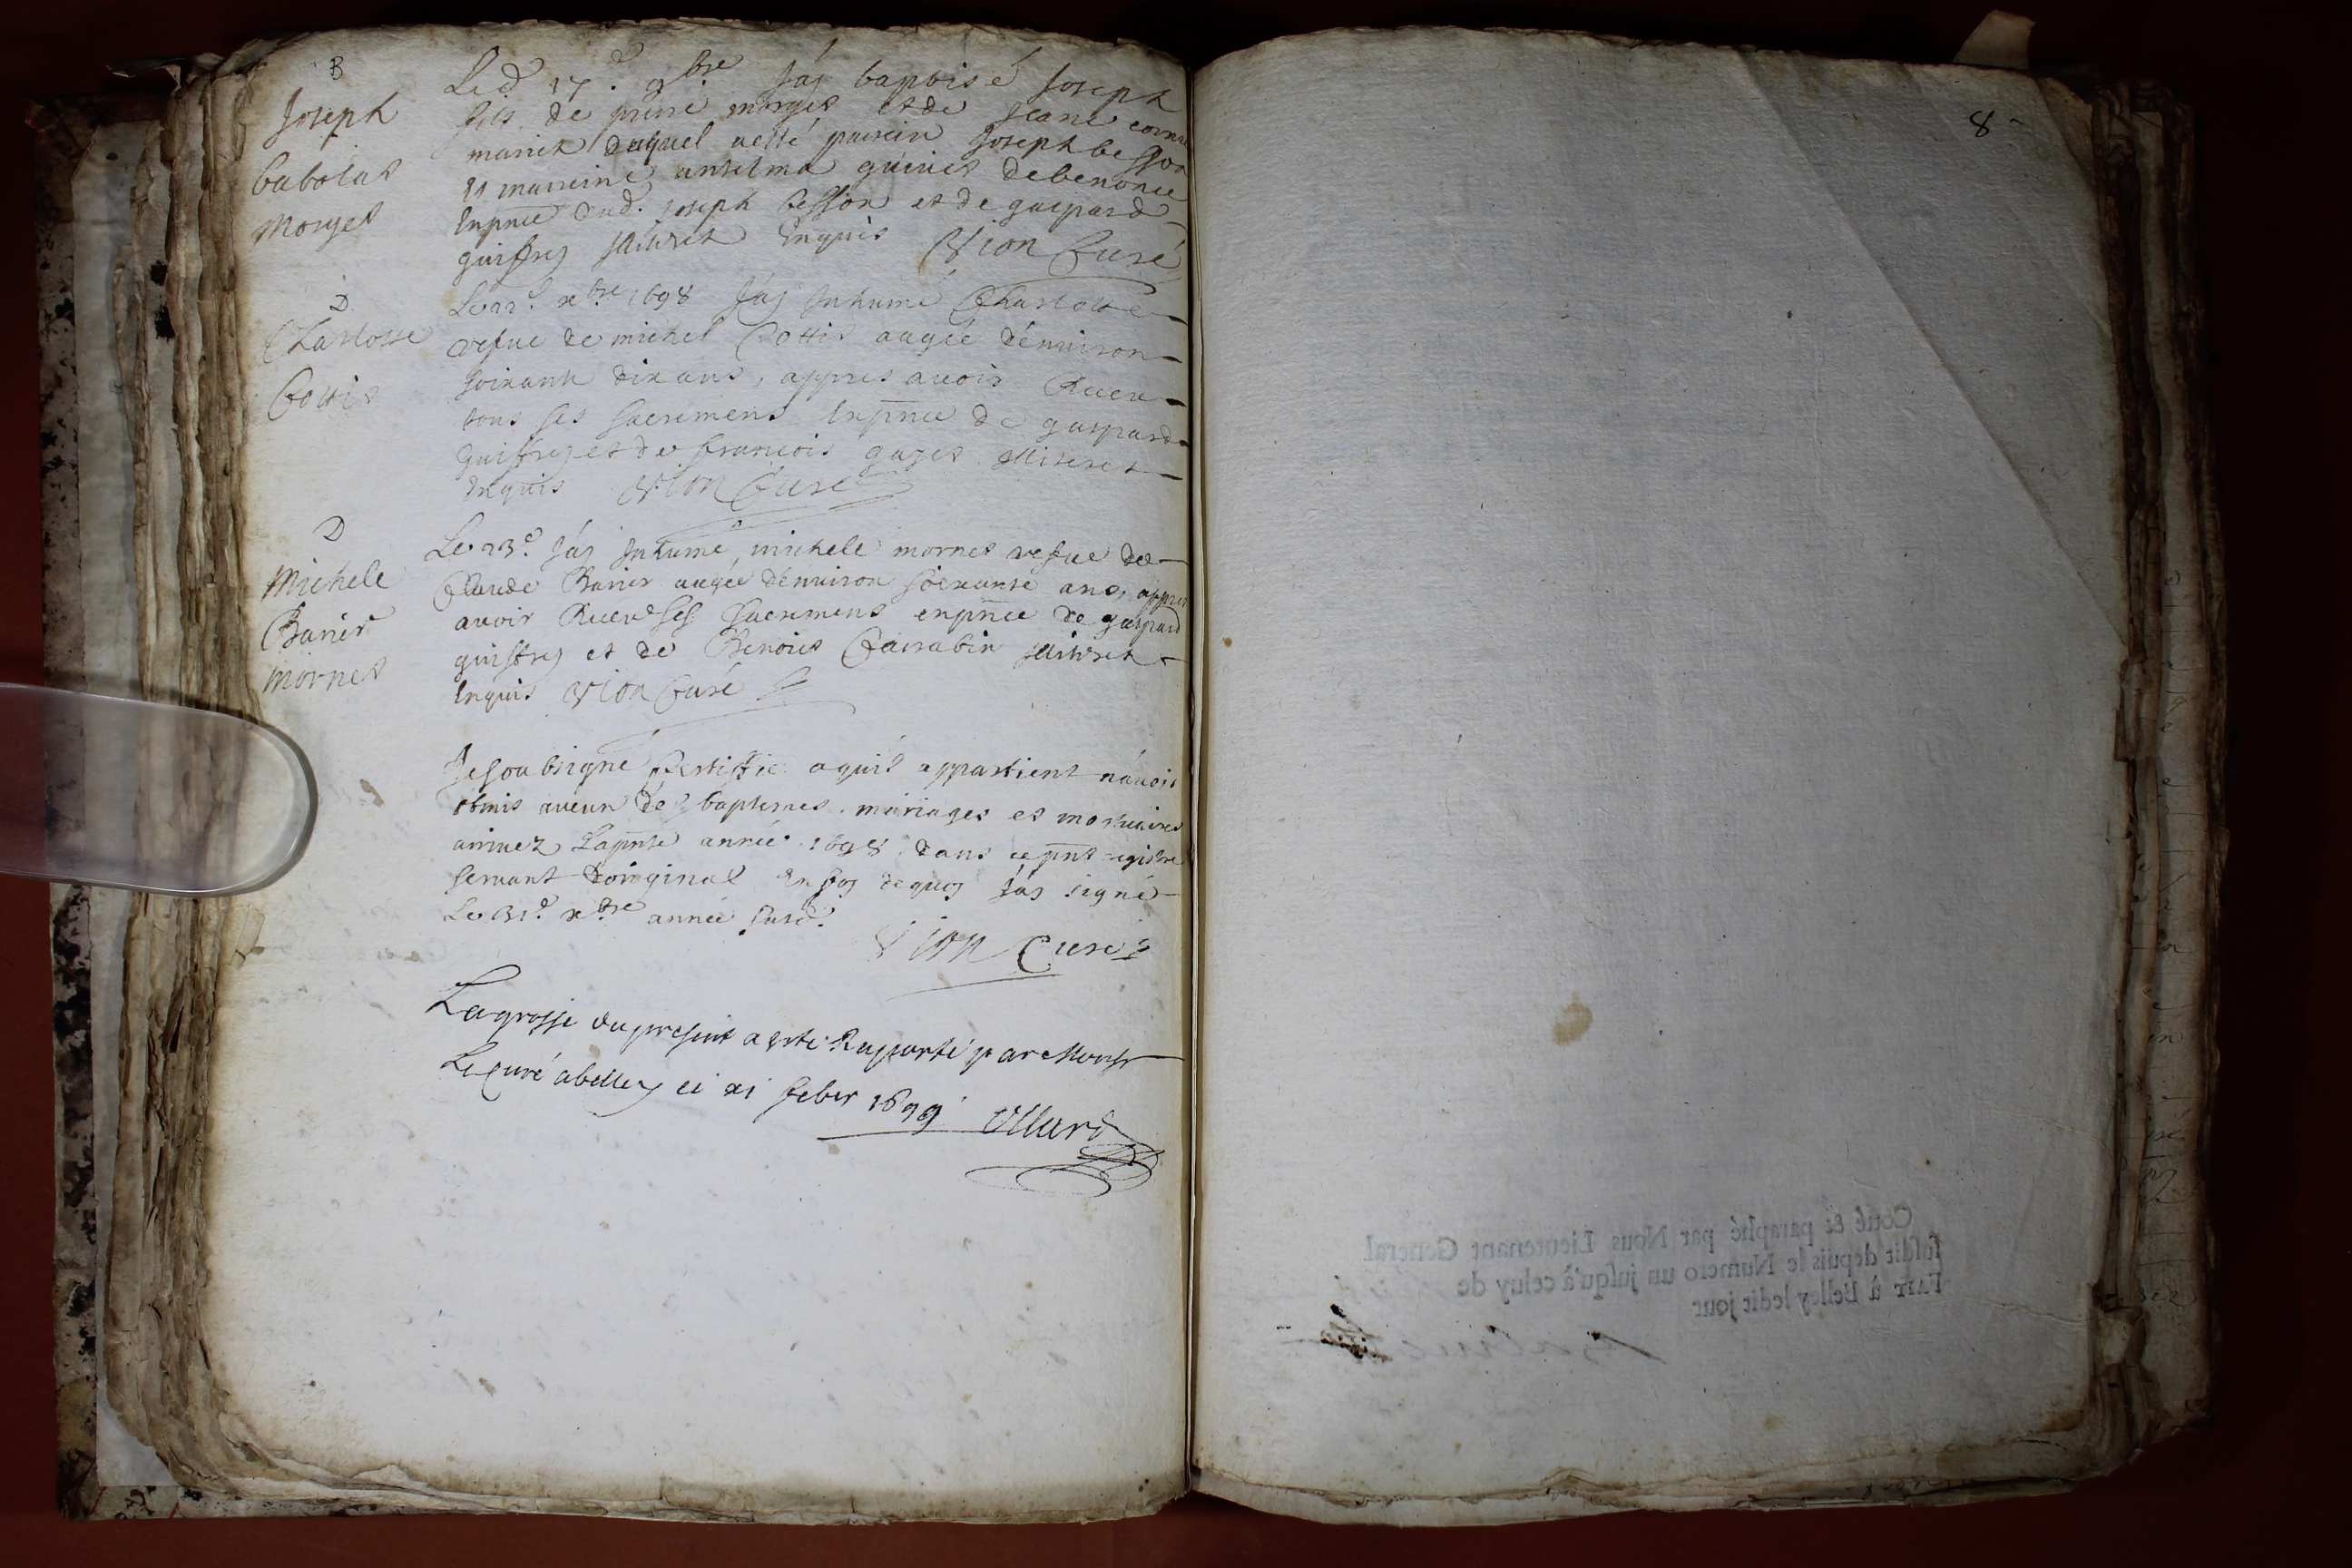 B
Joseph
babolat
Morget
Led. 17.e 9bre Jáy baptisé Joseph
fils de pierre morget et de Jeane
mariez duquel aesté parrein Joseph besson
et marreine antelma guinet debenonce
Enpnce dud. Joseph besson et de gaspard
guiffrey Enquis Vion Curé
D
Charlotte
Cottit
Le 22.e xbre 1698 Jáy Inhumé Charlotte
vefue de michel Cottit aagée dénuiron
soixante dix ans, appres auoir Receu
tous ses sacremens Enpnce de gaspard
guiffrey et de francois
Enquis Vion Curé
D
Michele
Banet
Mornet
Le 23.e Jáy Inhumé michele mornet vefue de
Claude aagée dénuiron soixante ans, appres
auoir Receu ses sacremens enpnce de gaspard
guiffrey et de Benoit
Enquis Vion Curé
Je soubsigné Certiffie aquil appartient náuoir
obmis aucun des baptemes. mariages et mortuaires
arriuez Lapnte année 1698 dans cepnt registre
seruant doriginal En foy dequoy Jáy signé
Le 31.e xbre année susd.
Vion Curé
Lagrosse dupresent aesté Rapporté par Monsr
Le Curé abelley ce xi feber 1699
8
Coté & paraphé par Nous Lieutenant General
susdit depuis le Numero un jusqu'à celuy de
FAIT à Belley ledit jour